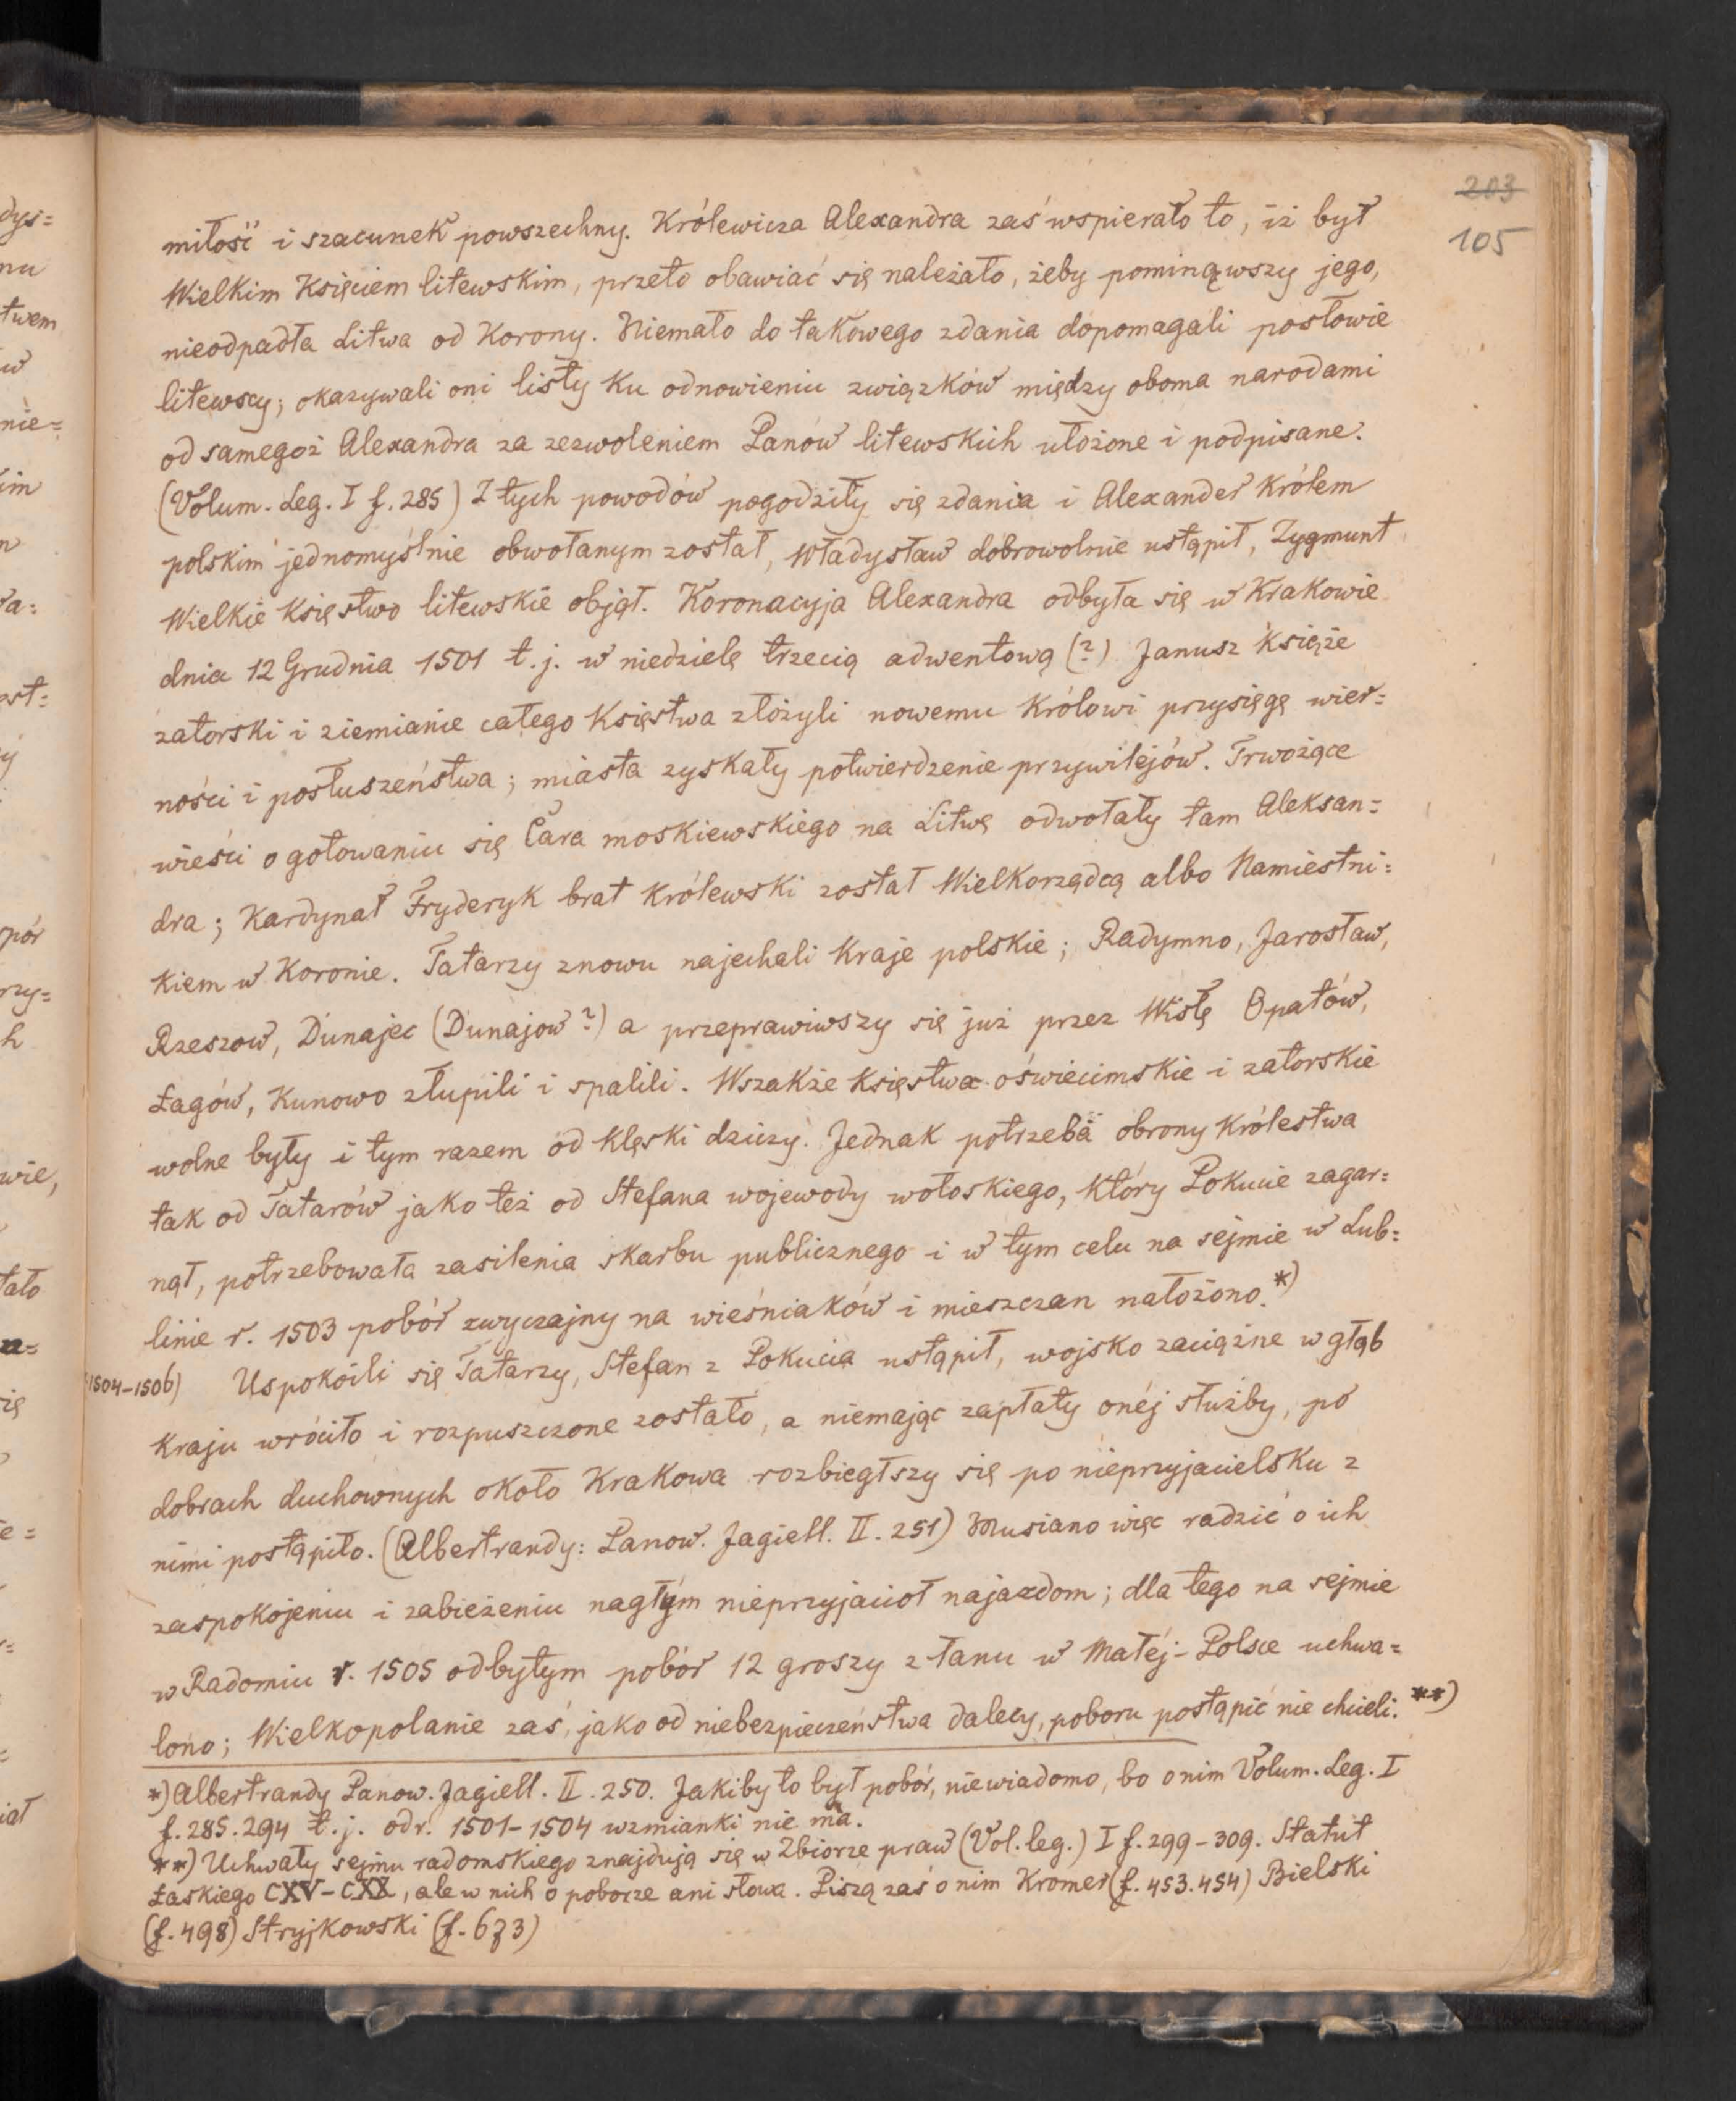 203
105
miłość i szacunek powszechny. Królewicza Alexandra zaś wspierało to, iż był
Wielkim Księciem litewskim, przeto obawiać się należało, żeby pominąwszy jego,
nieodpadła Litwa od Korony. Niemało do takowego zdania dopomagali posłowie
litewscy; okazywali oni listy ku odnowieniu związków między oboma narodami
od samegoż Alexandra za zezwoleniem Panów litewskich ułożone i podpisane.
(Volum. Leg. I f. 285) Z tych powodów pogodziły się zdania i Alexander Królem
polskim jednomyślnie obwołanym został, Władysław dobrowolnie ustąpił, Zygmunt
Wielkie Księstwo litewskie objął. Koronacyja Alexandra odbyła się w Krakowie
dnia 12 Grudnia 1501 t.j. w niedzielę trzecią adwentową (?) Janusz Książe
zatorski i ziemianie całego Księstwa złożyli nowemu Królowi przysięgę wier=
ności i posłuszeństwa; miasta zyskały potwierdzenie przywilejów. Trwożące
wieści o gotowaniu się Cara moskiewskiego na Litwę odwołały tam Aleksan=
dra; Kardynał Fryderyk brat Królewski został Wielkorządcą albo Namiestni=
kiem w Koronie. Tatarzy znowu najechali Kraje polskie; Radymno, Jarosław,
Rzeszow, Dunajec (Dunajow?) a przeprawiwszy się już przez Wisłę Opatów,
Łagów, Kunowo złupili i spalili. Wszakże Księstwa oświecimskie i zatorskie
wolne były i tym razem od klęski dziczy. Jednak potrzeba obrony Królestwa
tak od Tatarów jako też od Stefana wojewody wołoskiego, który Pokucie zagar=
nął, potrzebowała zasilenia skarbu publicznego i w tym celu na sejmie w Lub=
linie r. 1503 pobór zwyczajny na wieśniaków i mieszczan nałożono.*)
1504-1506) Uspokoili się Tatarzy, Stefan z Pokucia ustąpił, wojsko zaciężne w głąb
Kraju wróciło i rozpuszczone zostało, a niemając zapłaty onéj służby, po
dobrach duchownych około Krakowa rozbiegłszy się po nieprzyjacielsku z
nimi postąpiło. (Albertrandy: Panow. Jagiell. II. 251) Musiano więc radzić o ich
zaspokojeniu i zabieżeniu nagłym nieprzyjaciół najazdom; dla tego na sejmie
w Radomiu r. 1505 odbytym pobór 12 groszy z łanu w Małéj-Polsce uchwa=
lono; Wielkopolanie zaś, jako od niebezpieczeństwa dalecy, poboru postąpić nie chcieli. **)
*) Albertrandy Panow. Jagiell. II. 250. Jakiby to był pobór, niewiadomo, bo o nim Volum. Leg. I
f. 285. 294 t.j. od r. 1501-1504 wzmianki nie ma.
**) Uchwały sejmu radomskiego znajdują się w Zbiorze praw (Vol. leg.) I f. 299-309. Statut
Łaskiego CXV-CXX, ale w nich o poborze ani słowa. Piszą zaś o nim Kromer (f. 453. 454) Bielski
(f. 498) Stryjkowski (f. 673)